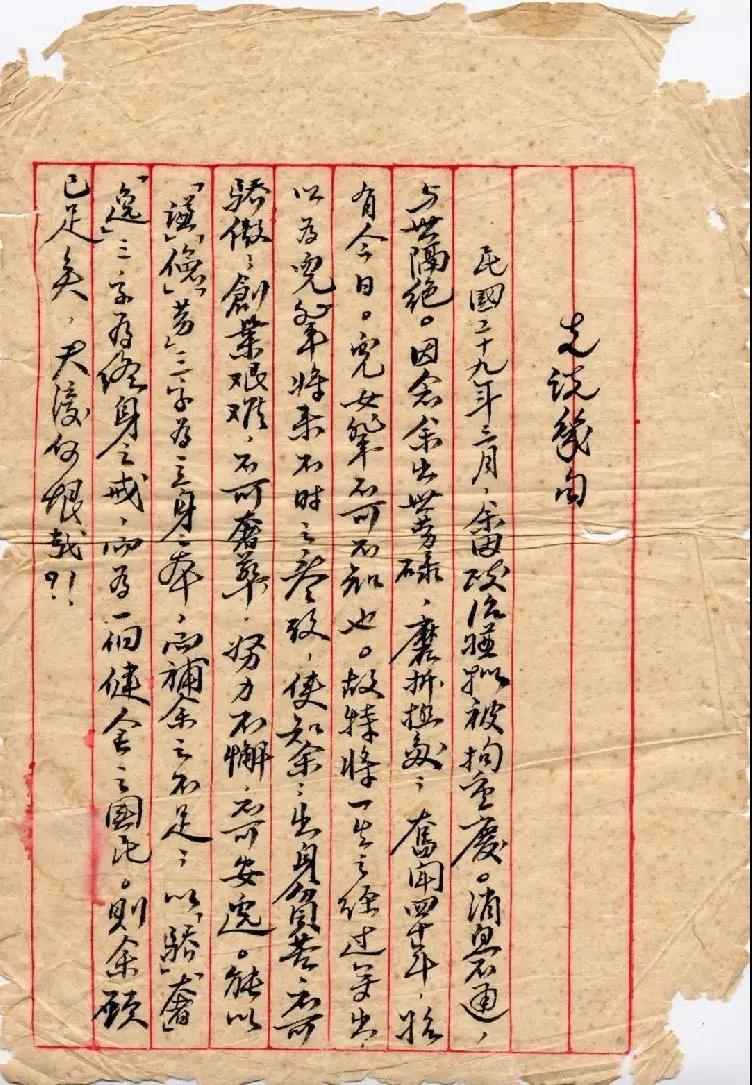 先说幾句
民國二十九年三月，余因政治嫌拟被拘重慶。消息不通，
与世隔绝。因念余出世劳碌，磨折極多，奮闘四十年，始
有今日。兒女輩不可不知也。故特将一生之经过写出，
以为兒輩将来不时之参攷，使知余之出身貧苦，不可
骄傲；創業艰难，不可奢華；努力不懈，不可安逸。能以
「謙」「儉」「劳」三字为立身之本，而補余之不足；以「骄」「奢」
「逸」三字为终身之戒，而为一個健全之國民。则余願
已足矣，夫復何恨哉？！